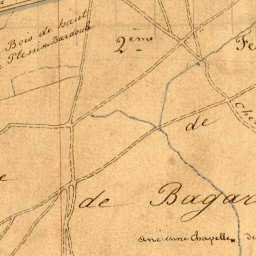 Bois de haut
Plessix Bardoult
2.ème
Fe
Che
de
e
de Bagar
ancienne Chapelle de